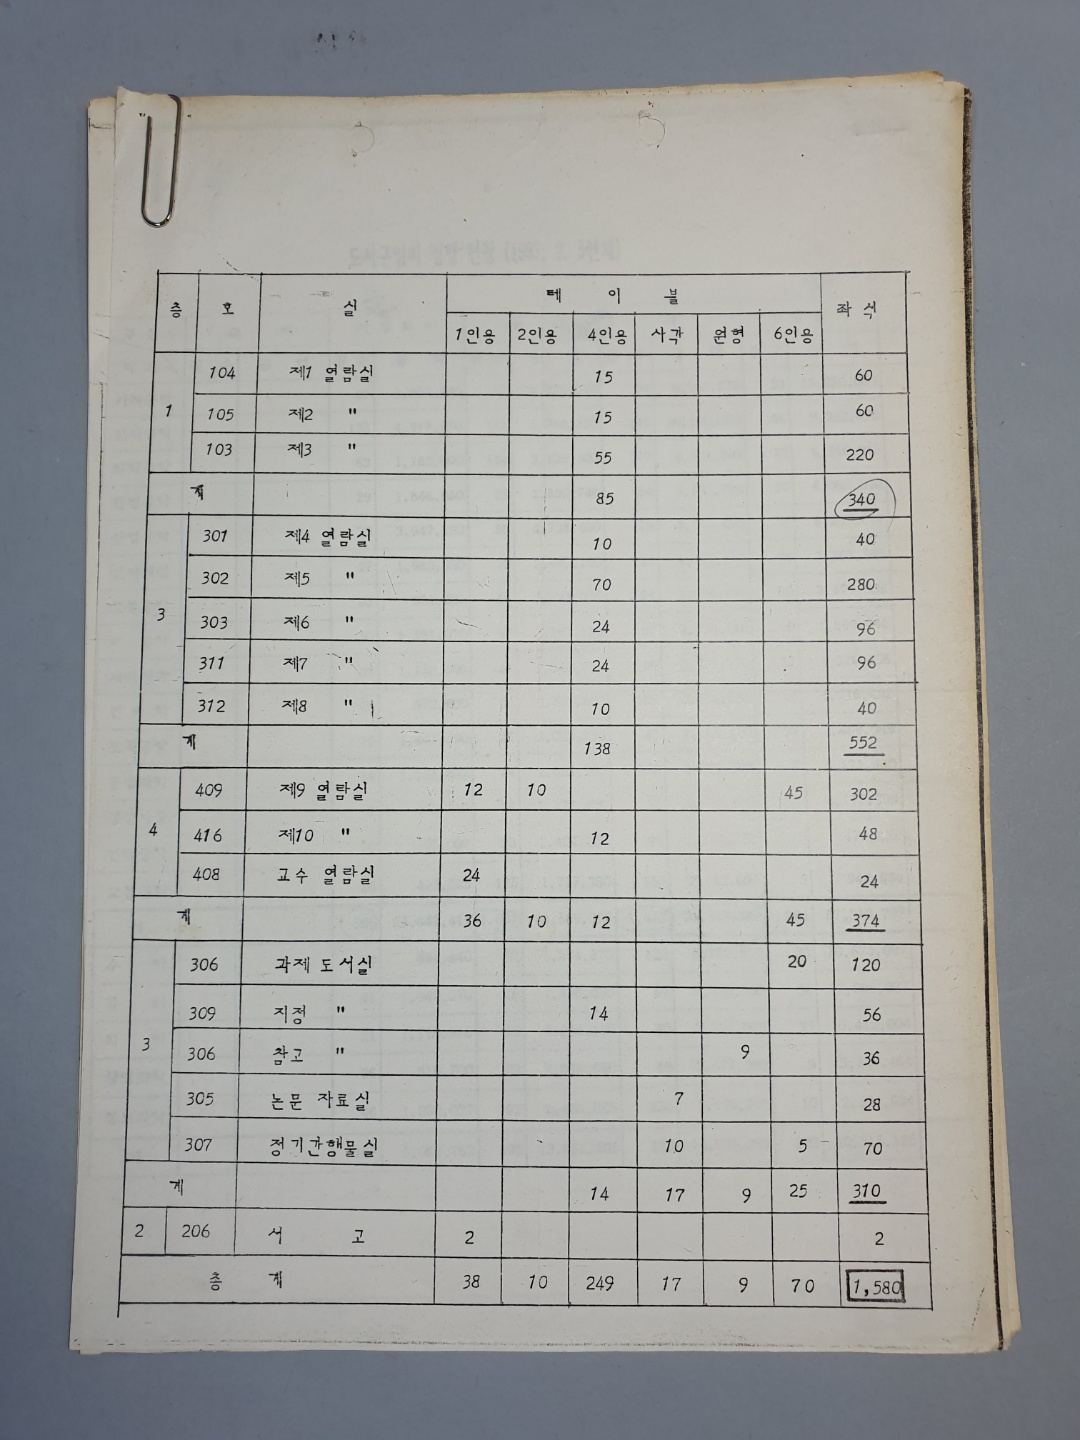 층 호 실 테 이 블 좌 석
1인용 2인용 4인용 사각 원형 6인용
1 104 제1 열람실 15 60
105 제2 " 15 60
103 제3 " 55 220
계 85 340
3 301 제4 열람실 10 40
302 제5 " 70 280
303 제6 " 24 96
311 제7 " 24 96
312 제8 " 10 40
계 138 552
4 409 제9 열람실 12 10 45 302
416 제10 " 12 48
408 교수 열람실 24 24
계 36 10 12 45 374
3 306 과제 도서실 20 120
309 지정 " 14 56
306 참고 " 9 36
305 논문 자료실 7 28
307 정기간행물실 10 5 70
계 14 17 9 25 310
2 206 서 고 2 2
총 계 38 10 249 17 9 70 1,580